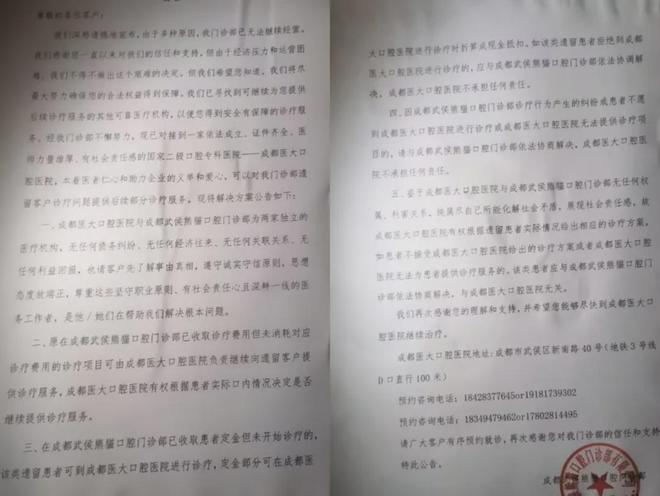 尊敬的各位客户：
我们深感遗憾地宣布，由于多种原因，我门诊部已无法继续经营。
我们将感谢您一直以来对我们的信任和支持，但由于经济压力和运营困
难，我们不得不做出这个艰难的决定。但我们希望您知道，我们将尽
最大努力确保您的合法权益得到保障。我们已寻找到可继续为您提供
后续诊疗服务的其他可靠医疗机构，以便您得到安全有保障的诊疗服
务。经我门诊部不懈努力，现已对接到一家依法成立、证件齐全、医
师力量雄厚、有社会责任感的国家二级口腔专科医院——成都医大口
腔医院，本着医者仁心和助力企业的义举和爱心，可以对我门诊部遗
留客户诊疗问题提供后续部分诊疗服务，现将解决方案公告如下：
一、成都医大口腔医院与成都武侯熊猫口腔门诊部为两家独立的
医疗机构，无任何债务纠纷、无任何经济往来、无任何关联关系、无
任何利益回报，也请客户先了解事由真相，遵守诚实守信原则，思想
态度放端正，尊重这些坚守职业原则、有社会责任心且深耕一线的医
务工作者，是他/她们在帮助我们解决根本问题。
二、原在成都武侯熊猫口腔门诊部已收取诊疗费用但未消耗对应
诊疗费用的诊疗项目可由成都医大口腔医院负责继续向遗留客户提
供诊疗服务，成都医大口腔医院有权根据患者实际口内情况决定是否
继续提供诊疗服务。
三、在成都武侯熊猫口腔门诊部已收取患者定金但未开始诊疗的，
该类遗留患者可到成都医大口腔医院进行诊疗，定金部分可在成都医
大口腔医院进行诊疗时折算成现金抵扣。如该类遗留患者拒绝到成都
医大口腔医院进行诊疗的，应与成都武侯熊猫口腔门诊部依法协调解
决，成都医大口腔医院不承担任何责任。
四、因成都武侯熊猫口腔门诊部诊疗行为产生的纠纷或患者不愿
到成都医大口腔医院进行诊疗或成都医大口腔医院无法提供诊疗项
目的，请与成都武侯熊猫口腔门诊部依法协商解决，成都医大口腔医
院不承担任何责任。
五、鉴于成都医大口腔医院与成都武侯熊猫口腔门诊部无任何权
属、利害关系，纯属尽自己所能化解社会矛盾，展现社会责任感，故
成都医大口腔医院有权根据遗留患者实际情况给出相应的诊疗方案，
如患者不接受成都医大口腔医院给出的诊疗方案或者成都医大口腔
医院无法为患者提供诊疗服务的，该类患者应与成都武侯熊猫口腔门
诊部依法协商解决，与成都医大口腔医院无关。
我们再次感谢您的理解和支持，并希望您能够尽快到成都医大口
腔医院继续治疗。
成都医大口腔医院地址：成都市武侯区新南路40号（地铁3号线
D口直行100米）
预约咨询电话：18428377645or19181739302
预约咨询电话：18349479462or17802814495
请广大客户有序预约就诊，再次感谢您对我门诊部的信任和支持
特此公告。
成都武侯熊猫口腔门诊部